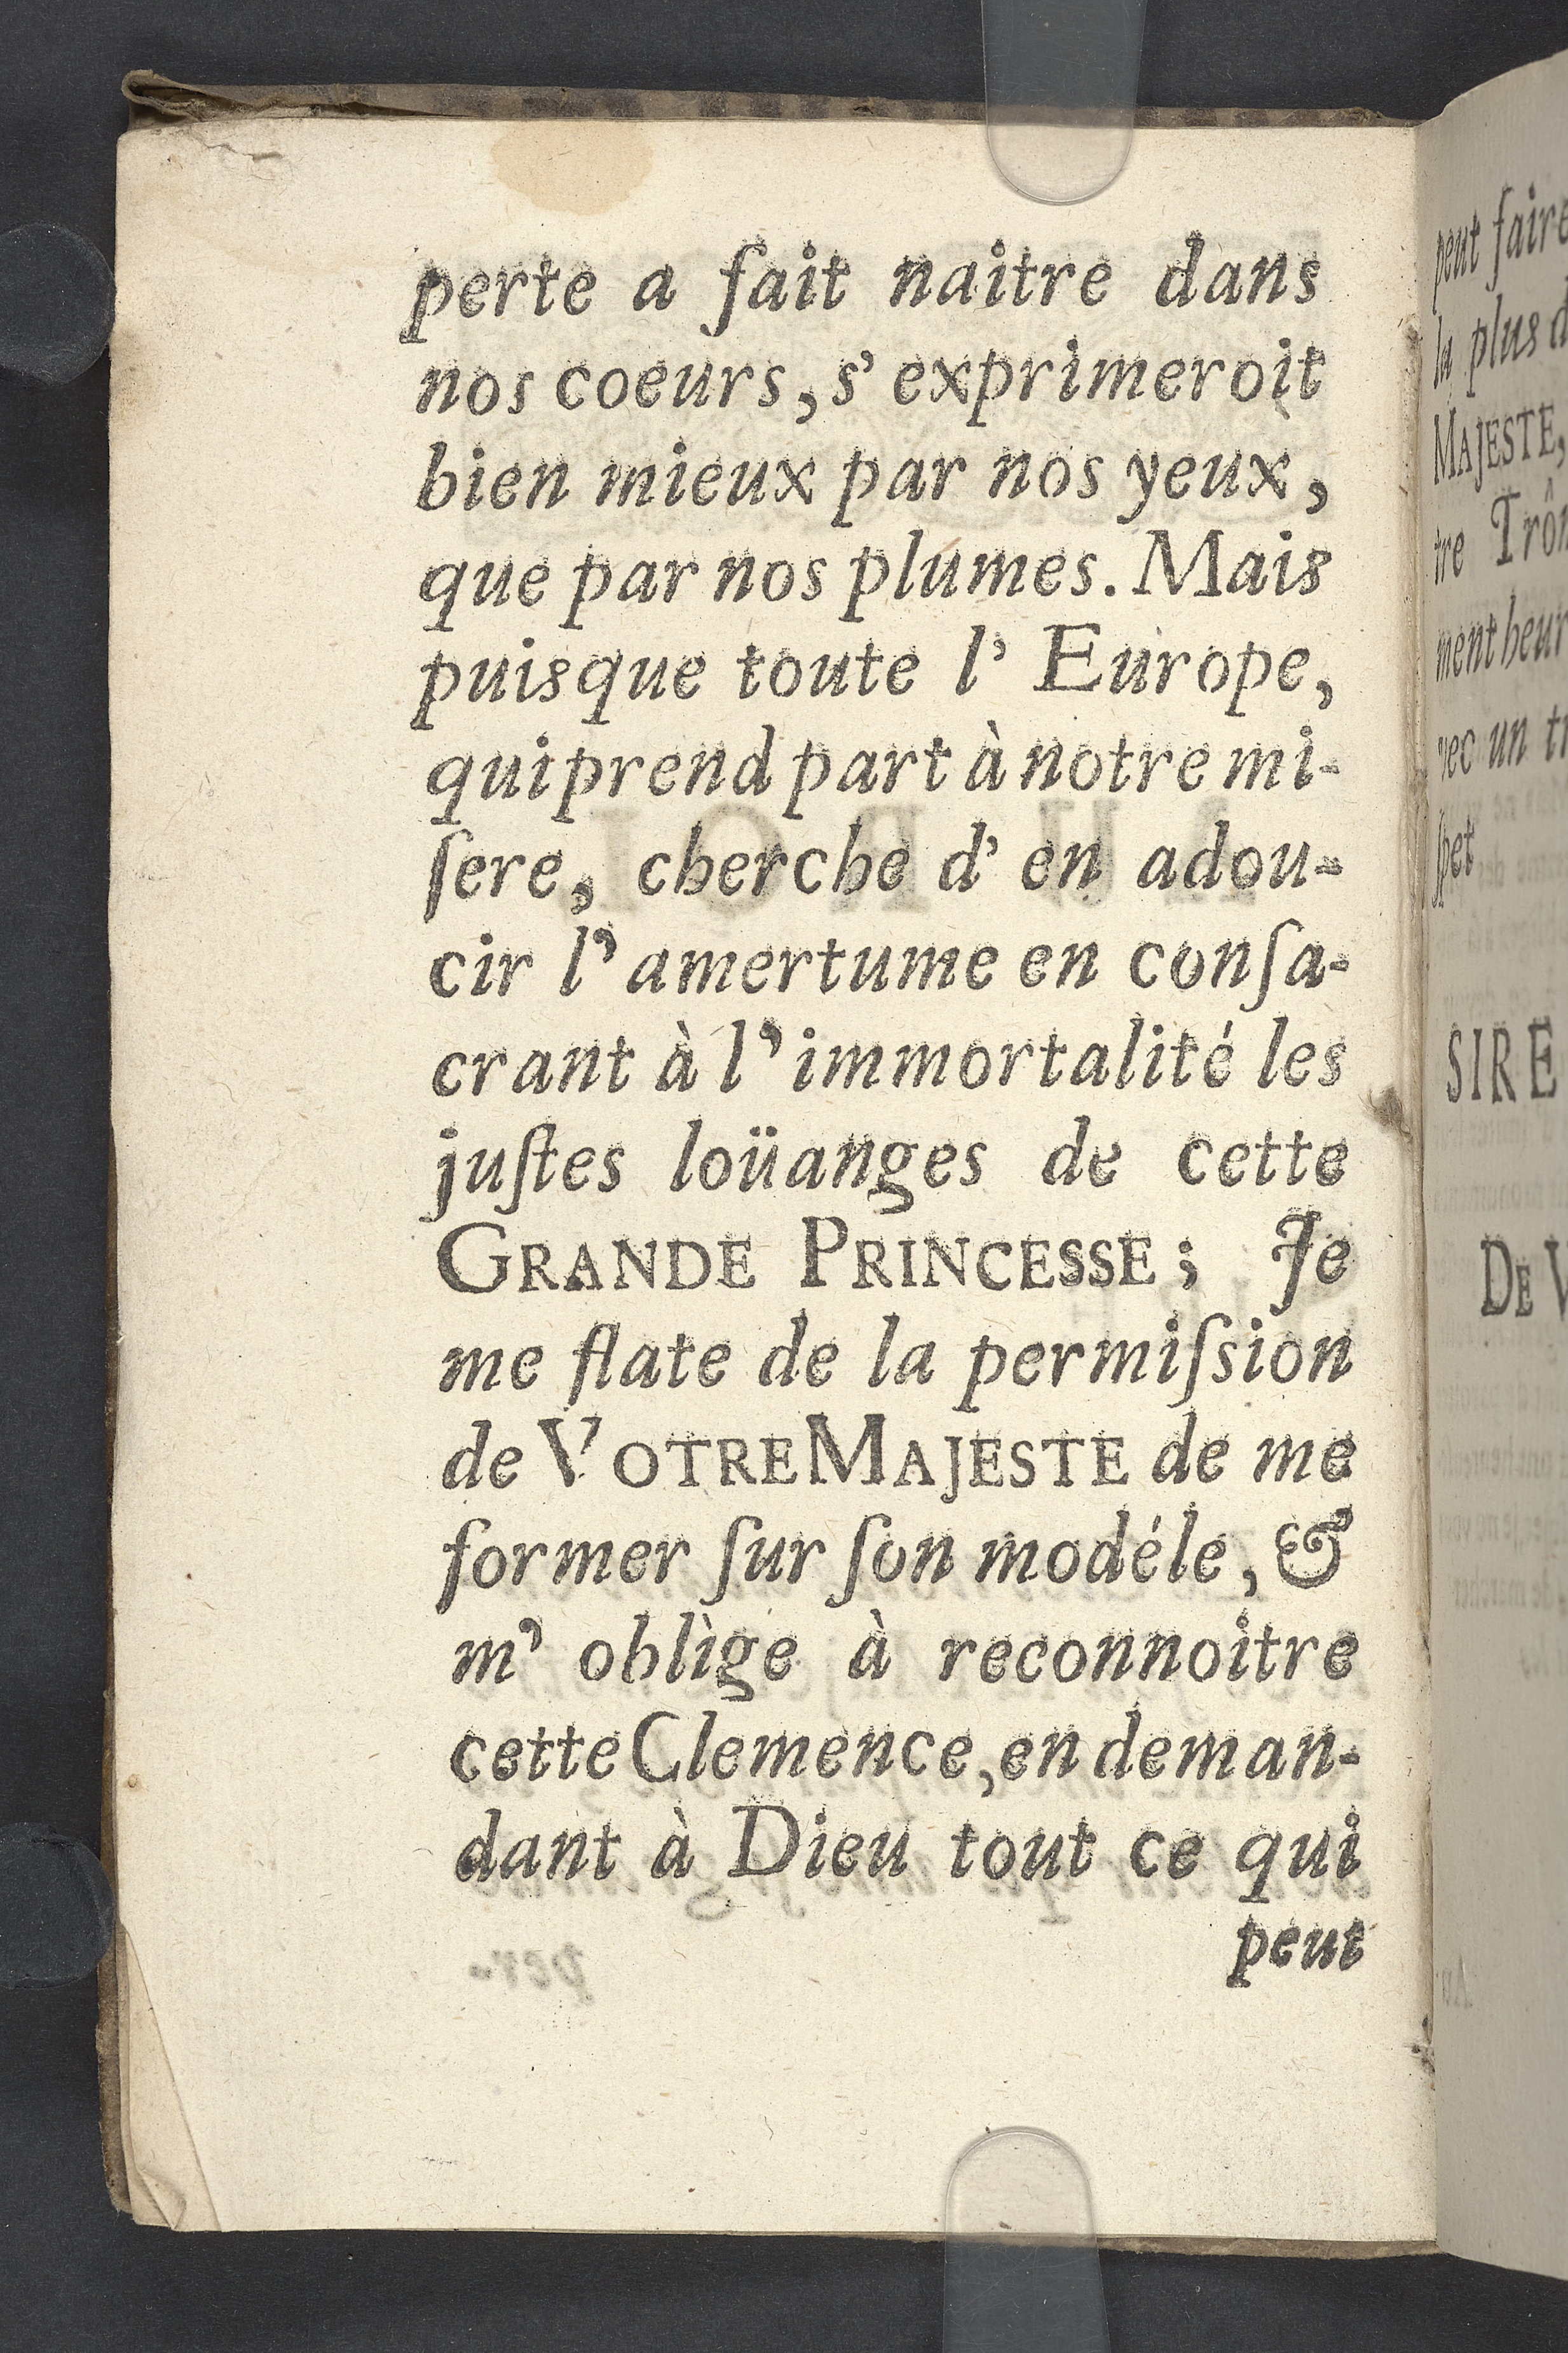 perte a fait naitre dans
nos coeurs, s' exprimeroit
bien mieux par nos yeux,
que par nos plumes. Mais
puisque toute l' Europe,
qui prend part à notre mi-
ſere, cherche d' en adou-
cir l' amertume en conſa-
crant à l' immortalité les
juſtes loüanges de cette
GRANDE PRINCESSE; Je
me flate de la permiſsion
de VOTRE MAJESTE de me
former ſur ſon modéle, &
m' oblige à reconnoitre
cette Clemence, en deman-
dant à Dieu tout ce qui
peut
peut faire
la plus d
MAJESTE,
tre Trôn
ment heur
vec un tr
ſpet
SIRE
DE V